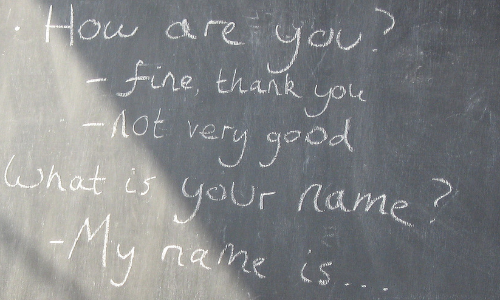 · How are you?
- fine, thank you
- not very good
What is your name?
- My name is....